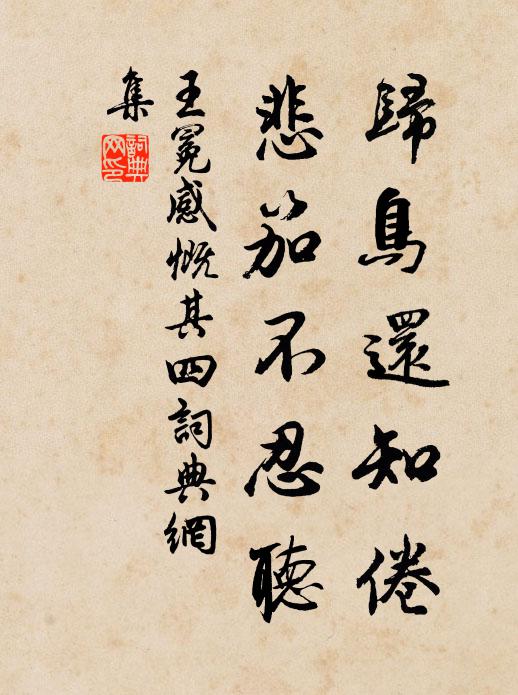 歸鳥還知倦
悲笳不忍聽
王冕感慨其四詞典網
集
詞典
网印